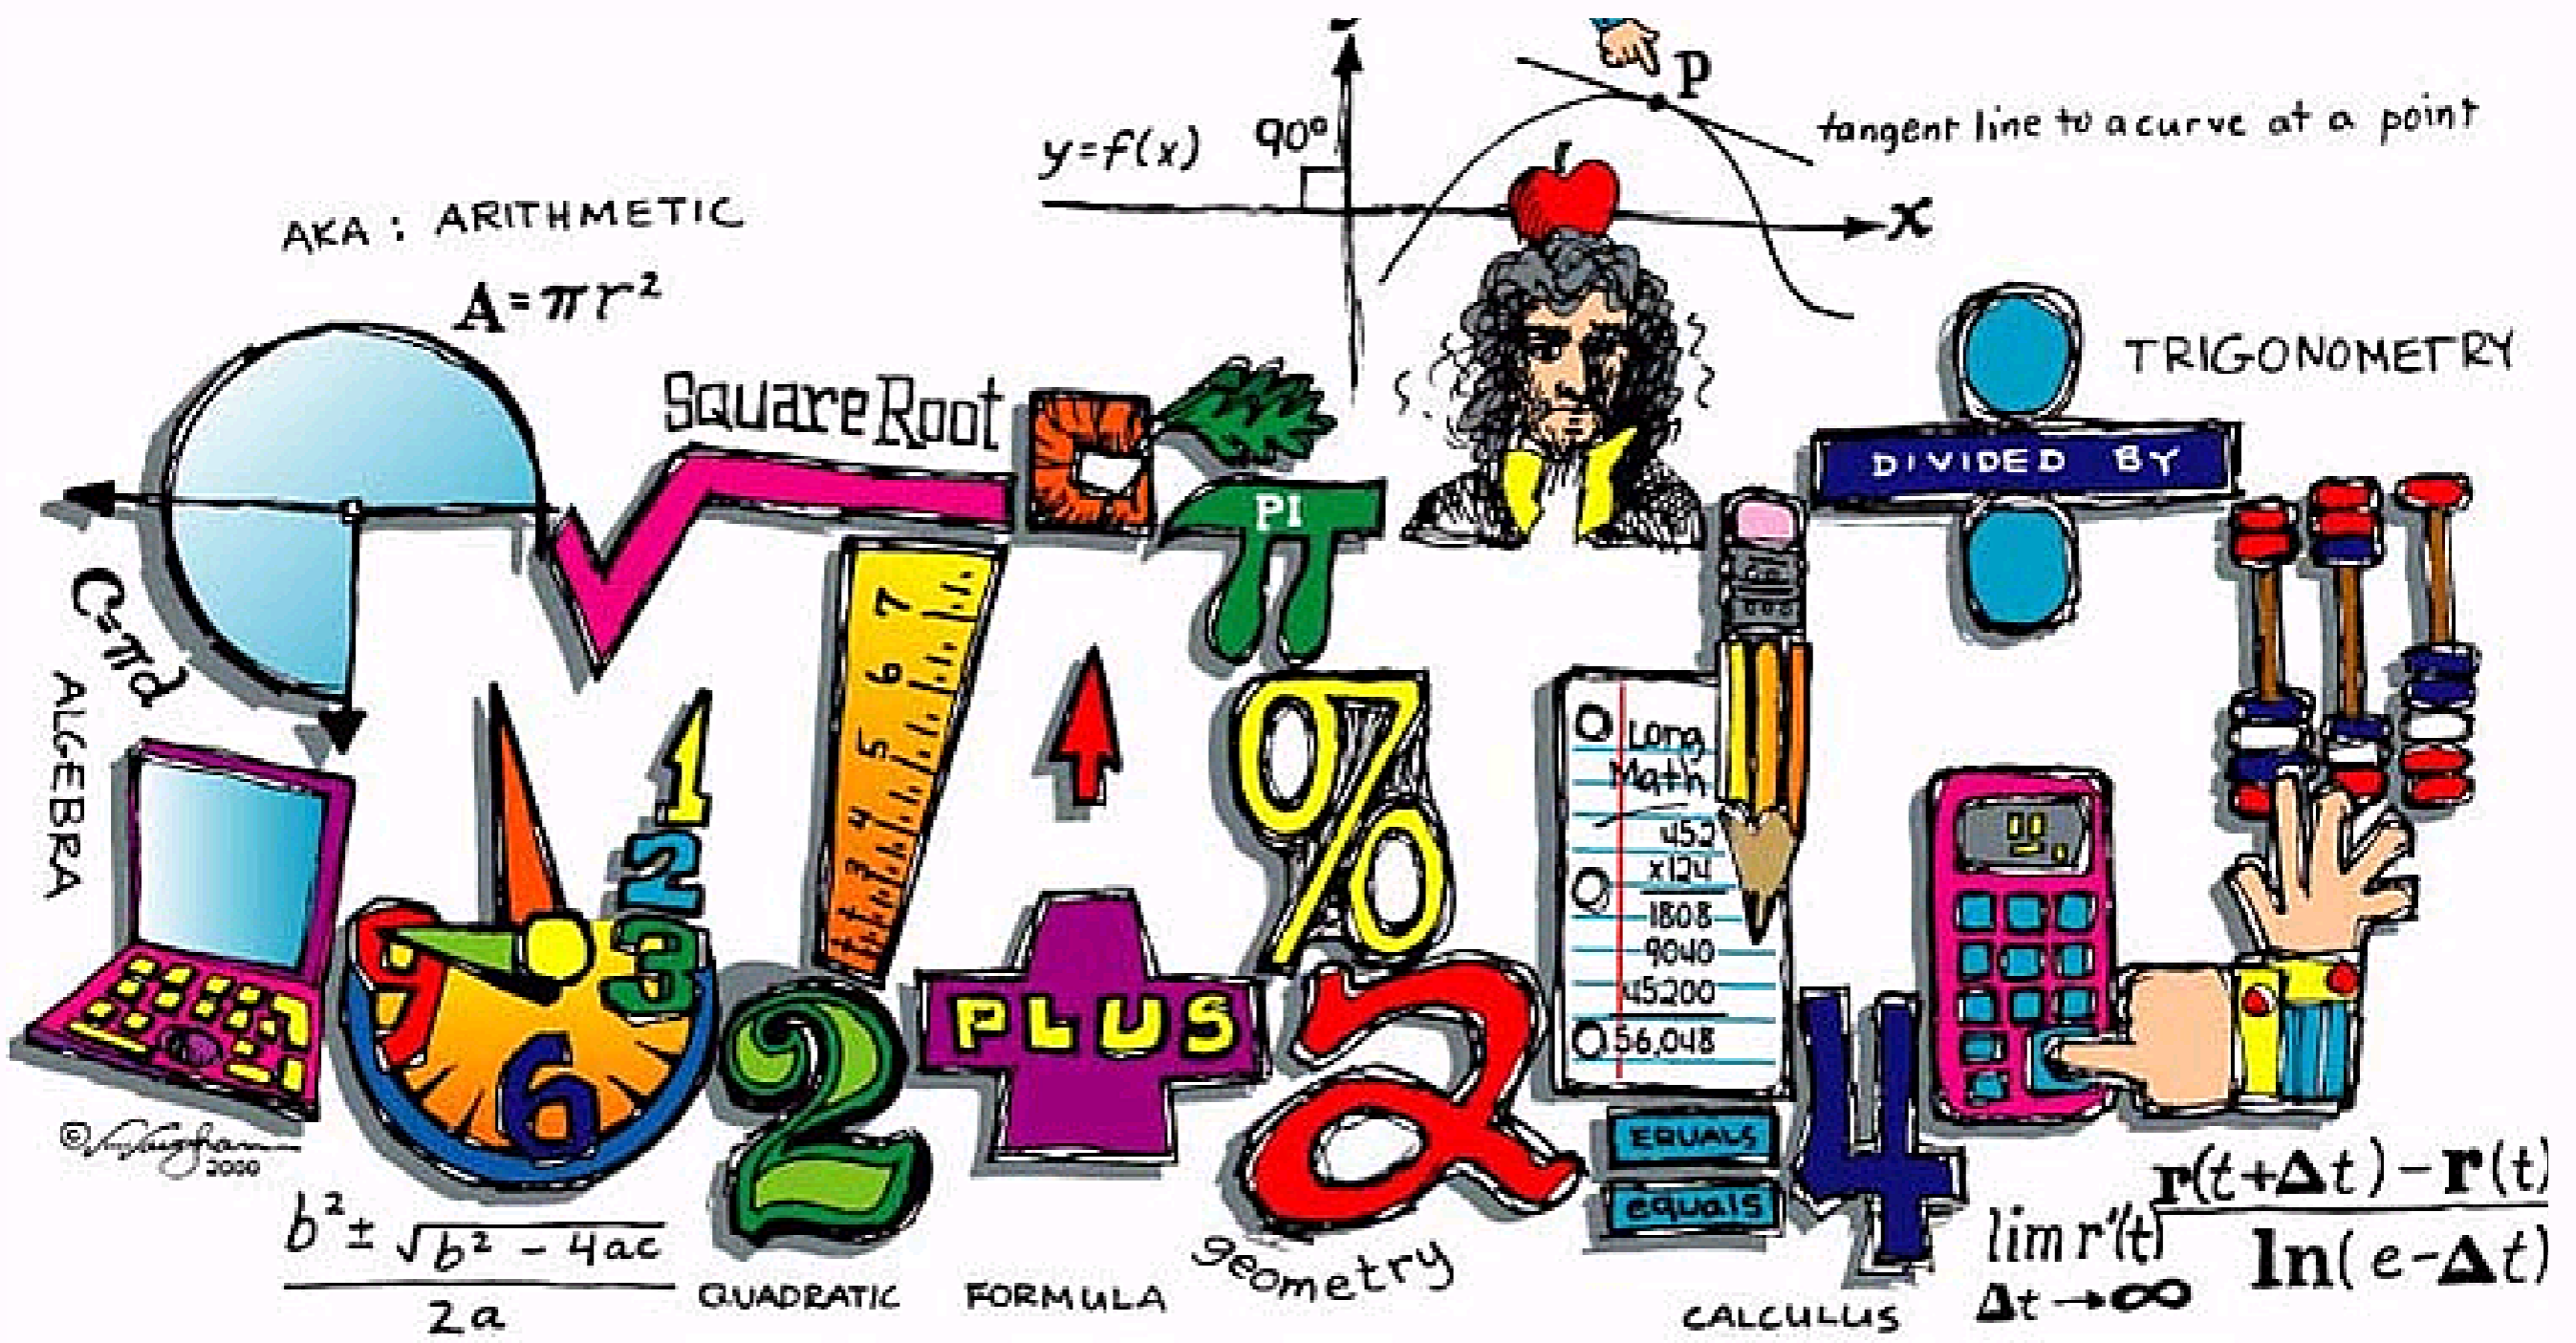 y=f(x)
90°
P
tangent line to a curve at a point
x
AKA: ARITHMETIC
A=πr²
TRIGONOMETRY
Square Root
DIVIDED BY
PI
π
C=πd
ALGEBRA
7
6
5
4
3
1
2
3
6
9
%
Long
Math
452
x124
1808
9040
45200
56,048
2
PLUS
2
EQUALS
equals
4
© Vaughan
2000
b² ± √b² - 4ac
2a
QUADRATIC FORMULA
geometry
CALCULUS
lim r'(t) r(t+Δt)-r(t)
Δt→∞ ln(e-Δt)